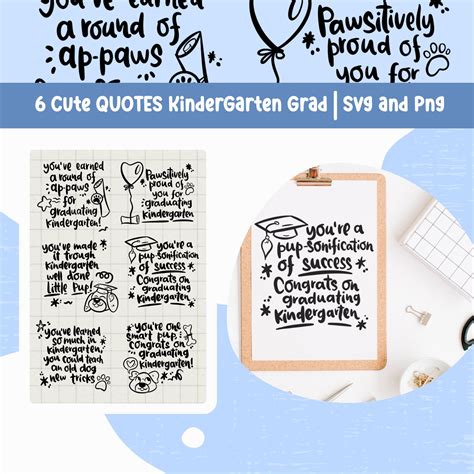 you've earned
a round of
ap-paws
Pawsitively
proud of
you for
6 Cute QUOTES KinderGarten Grad | Svg and Png
you've earned
a round of
ap-paws
for
graduating
kindergarten!
Pawsitively
proud of
you for
graduating
kindergarten
You've made
it trough
kindergarten
well done
little Pup!
you're a
pup-sonification
of success
Congrats on
graduating
kindergarten
you've learned
so much in
kindergarten,
you could teach
an old dog
new tricks
You're one
smart pup,
congrats on
graduating
kindergarten
you're a
pup-sonification
of success
Congrats on
graduating
kindergarten